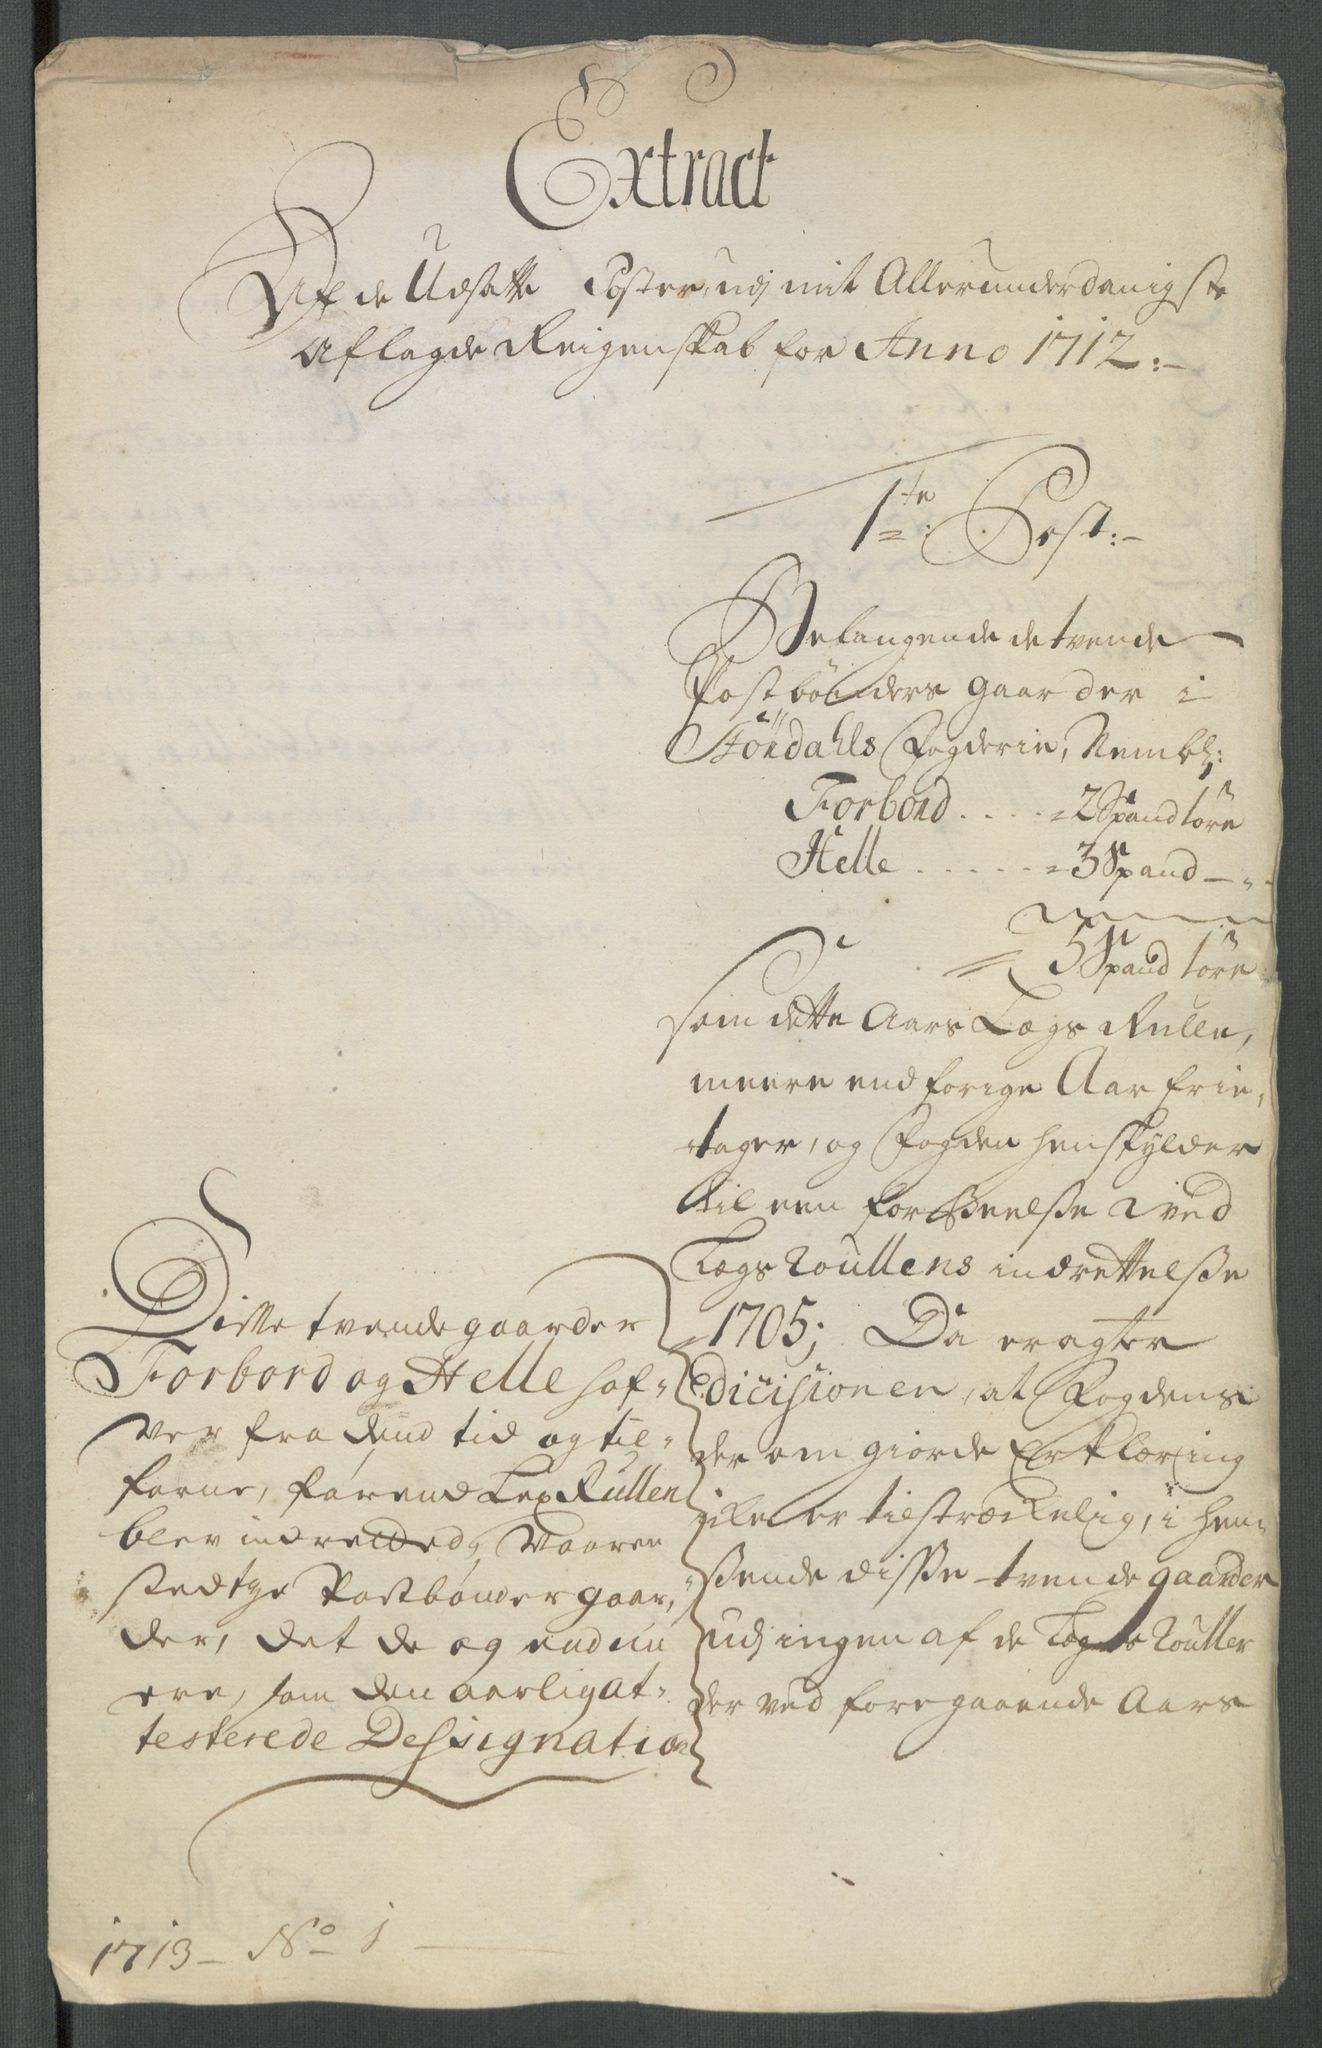 Extract
Af de Udsatte Poster, udj mit Allerunderdanigste
Aflagde Reigenskab for Anno 1712:-
1te: Post:-
Belangende de tvende
Postbönders gaarder i
Stördahls Fogderie, Nembl:
Forbord . . . . 2 Spand löre
Helle . . . . . 3 Spand — " -
5 Spand löre
som dette Aars Lægs Rulle,
meere end forige Aar frie,
tager, og Fogden henskylder
til een forseelsse ved
Lægs Roullens indrettelsse
1705; Da eragter
Decisionen, at Fogdens
der om giorde Erklæring
icke er tilstræckelig, i hen-
seende disse tvende gaarder
udj ingen af de Lægs Rouller
der ved foregaaende Aars
Disse tvende gaarder
Forbord og Helle haf-
ver fra dend tid og til-
forne, förend Leg Rullen
blev indretted, vaaren
stedtze Postbönder gaar,
der, det de og endnu
ere, som den aarlig at-
testerede Designation
1713 - No 1